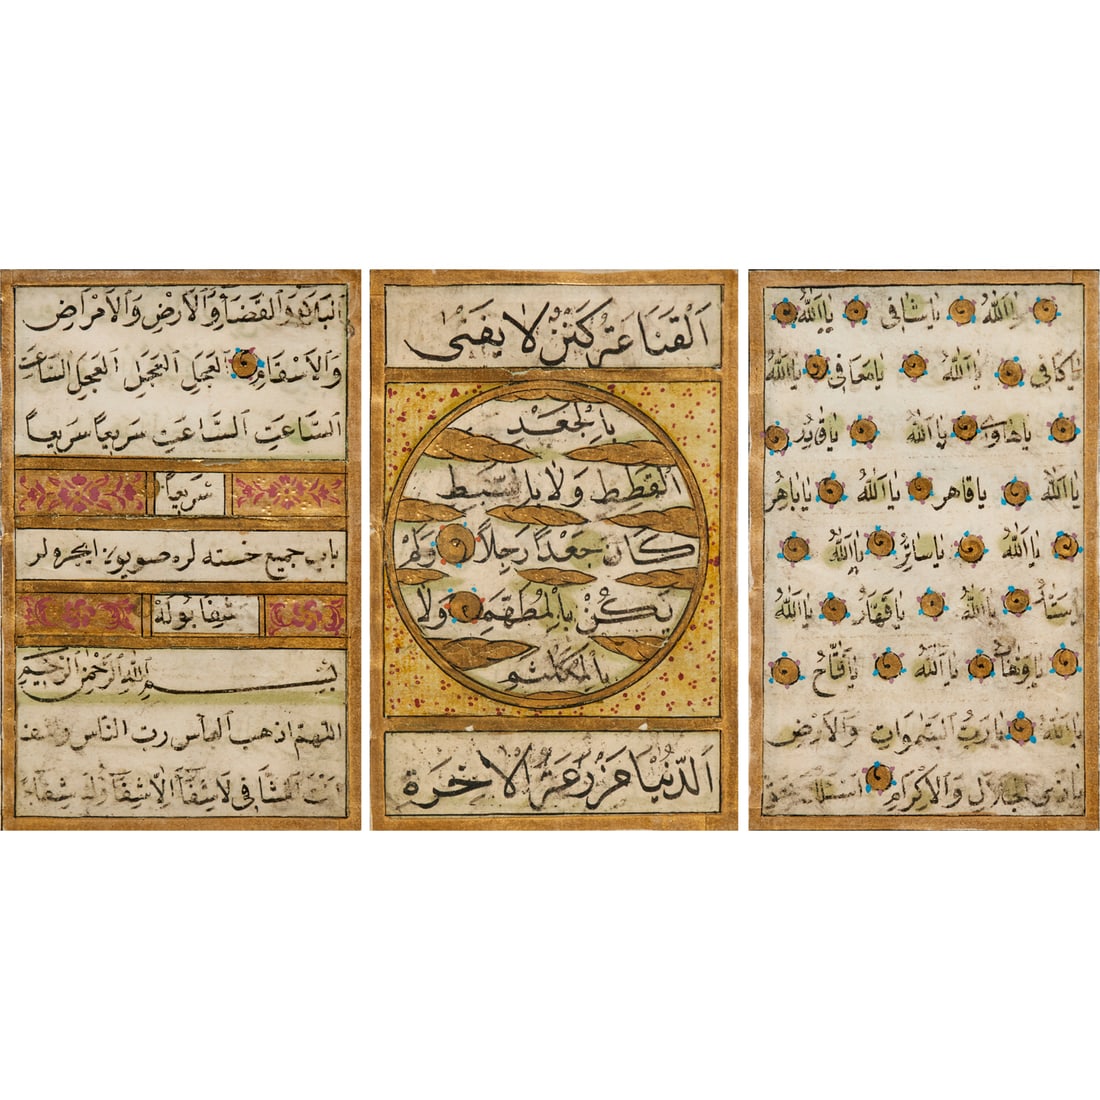 البلاء والقضاء والارض والامراض
والاسقام العجل العجل العجل العجل الساعت
الساعت الساعت سريعاً سريعاً
سريعاً
باب جميع خسته لره صويويله ايچره لر
شفا بوله
بسم الله الرحمن الرحيم
اللهم اذهب البأس رب الناس واشف
انت الشافى لا شفاء الا شفاؤك شفاء
القناعة كنز لا يفنى
بالجعد
القطط ولا بالسبط
كان جعداً رجلاً ولم
يكن بالمطهم ولا
بالمكلثم
الدنيا مزرعة الاخرة
يا الله يا شافى يا الله
يا كافى يا الله يا معافى يا الله
يا هادى يا الله يا قديد
يا الله يا قاهر يا الله يا باهر
يا الله يا ساتر يا الله
يا ستار يا الله يا قهار يا الله
يا وهاب يا الله يا فتاح
يا الله يا رب السموات والارض
يا ذى الجلال والاكرام